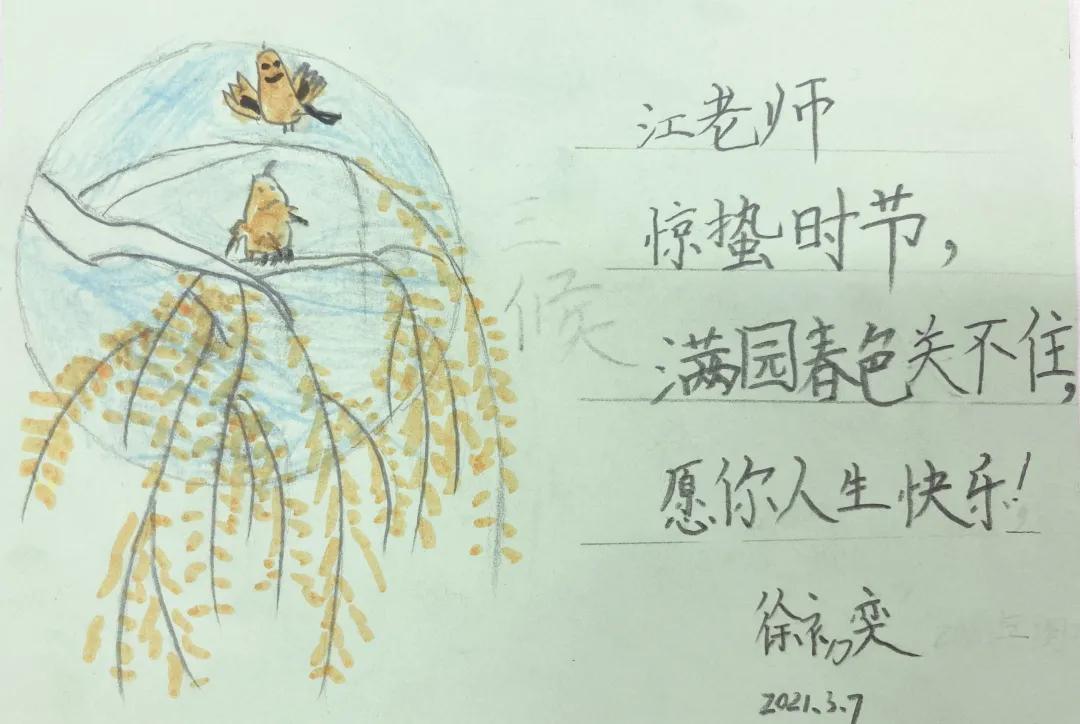 江老师
惊蛰时节，
满园春色关不住，
愿你人生快乐！
徐初奕
2021.3.7
三
候